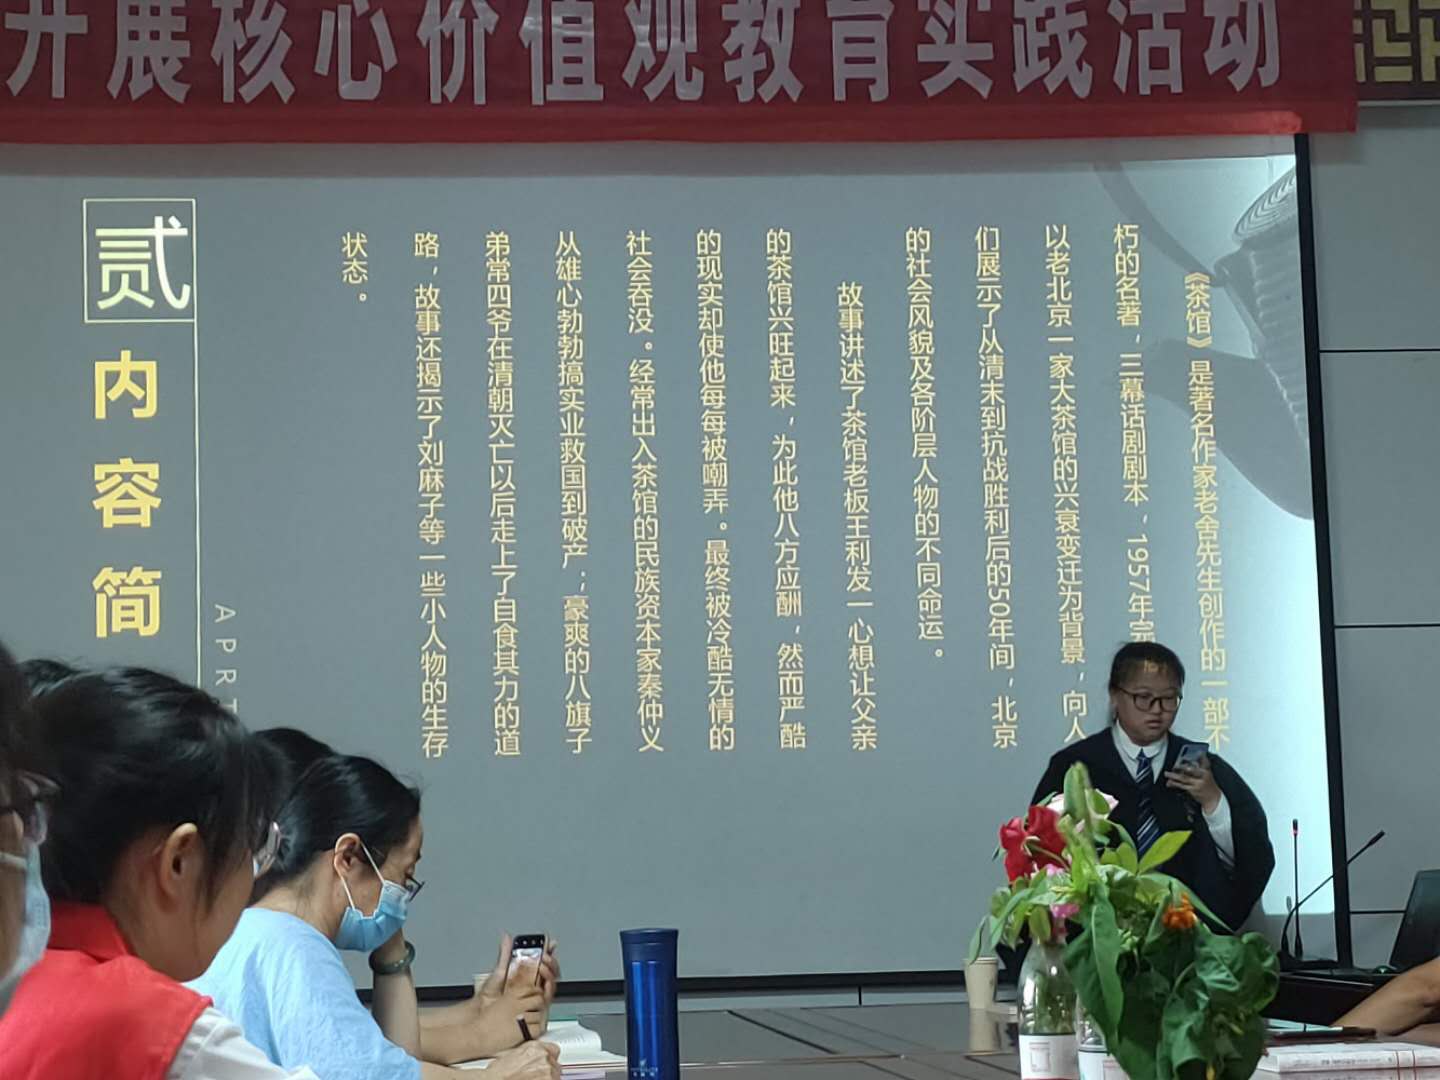 开展核心价值观教育实践活动
贰
内容简
APRT
《茶馆》是著名作家老舍先生创作的一部不
朽的名著、三幕话剧剧本、1957年完
以老北京一家大茶馆的兴衰变迁为背景，向人
们展示了从清末到抗战胜利后的50年间，北京
的社会风貌及各阶层人物的不同命运。
故事讲述了茶馆老板王利发一心想让父亲
的茶馆兴旺起来，为此他八方应酬，然而严酷
的现实却使他每每被嘲弄。最终被冷酷无情的
社会吞没。经常出入茶馆的民族资本家秦仲义
从雄心勃勃搞实业救国到破产；豪爽的八旗子
弟常四爷在清朝灭亡以后走上了自食其力的道
路，故事还揭示了刘麻子等一些小人物的生存
状态。